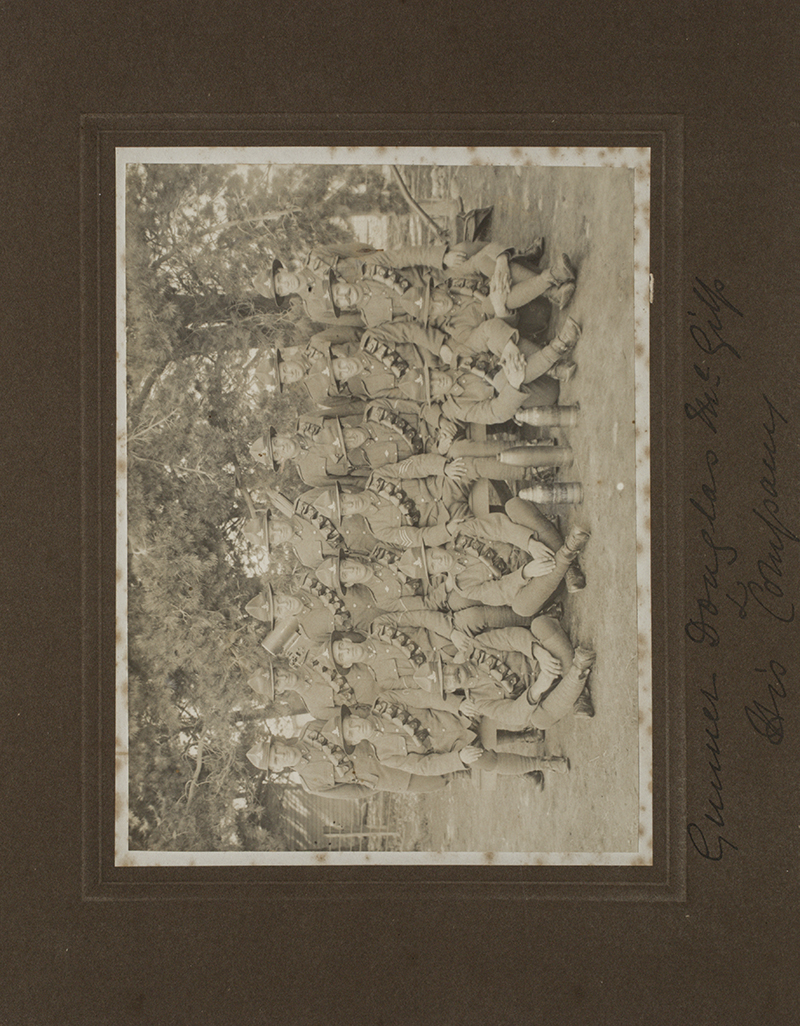 Gunner Douglas McGilp
&
His Company